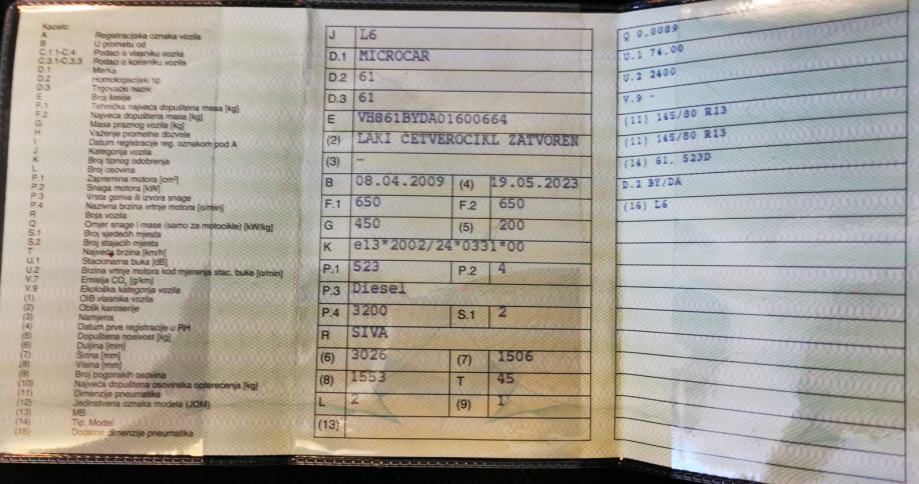 Kazalo:
A Registracijska oznaka vozila
B U prometu od
C.1.1-C.4 Podaci o vlasniku vozila
C.3.1-C.3.3 Podaci o korisniku vozila
D.1 Marka
D.2 Homologacijski tip
D.3 Trgovački naziv
E Broj šasije
F.1 Tehnička najveća dopuštena masa [kg]
F.2 Najveća dopuštena masa [kg]
G Masa praznog vozila [kg]
H Važenje prometne dozvole
I Datum registracije reg. oznakom pod A
J Kategorija vozila
K Broj tipnog odobrenja
L Broj osovina
P.1 Zapremina motora [cm³]
P.2 Snaga motora [kW]
P.3 Vrsta goriva ili izvora snage
P.4 Nazivna brzina vrtnje motora [o/min]
R Boja vozila
Q Omjer snage i mase (samo za motocikle) [kW/kg]
S.1 Broj sjedećih mjesta
S.2 Broj stajaćih mjesta
T Najveća brzina [km/h]
U.1 Stacionarna buka [dB]
U.2 Brzina vrtnje motora kod mjerenja stac. buke [o/min]
V.7 Emisija CO₂ [g/km]
V.9 Ekološka kategorija vozila
(1) OIB vlasnika vozila
(2) Oblik karoserije
(3) Namjena
(4) Datum prve registracije u RH
(5) Dopuštena nosivost [kg]
(6) Duljina [mm]
(7) Širina [mm]
(8) Visina [mm]
(9) Broj pogonskih osovina
(10) Najveća dopuštena osovinska opterećenja [kg]
(11) Dimenzije pneumatika
(12) Jedinstvena oznaka modela (JOM)
(13) MB
(14) Tip, Model
(15) Dodatne dimenzije pneumatika
J L6
D.1 MICROCAR
D.2 61
D.3 61
E VH861BYDA01600664
(2) LAKI ČETVEROCIKL ZATVOREN
(3) -
B 08.04.2009 (4) 19.05.2023
F.1 650 F.2 650
G 450 (5) 200
K e13*2002/24*0331*00
P.1 523 P.2 4
P.3 Diesel
P.4 3200 S.1 2
R SIVA
(6) 3026 (7) 1506
(8) 1553 T 45
L 2 (9) 1
(13)
Q 0.0089
U.1 74.00
U.2 2400
V.9 -
(11) 145/80 R13
(11) 145/80 R13
(14) 61, 523D
D.2 BY/DA
(16) L6